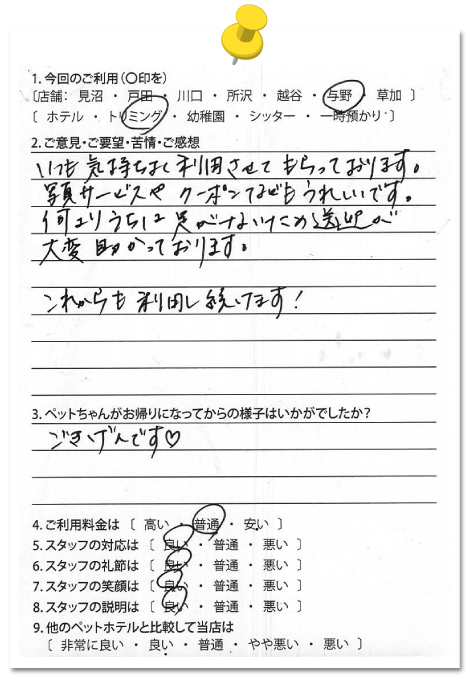 1. 今回のご利用(〇印を)
〔店舗： 見沼 ・ 戸田 ・ 川口 ・ 所沢 ・ 越谷 ・ 与野 ・ 草加 〕
〔 ホテル ・ トリミング ・ 幼稚園 ・ シッター ・ 一時預かり 〕
2. ご意見・ご要望・苦情・ご感想
いつも気持ちよく利用させてもらっております。
写真サービスや クーポンなどもうれしいです。
何よりうちは足がないため送迎が
大変助かっております。
これからも利用し続けます！
3. ペットちゃんがお帰りになってからの様子はいかがでしたか？
ごきげんです♡
4. ご利用料金は 〔 高い ・ 普通 ・ 安い 〕
5. スタッフの対応は 〔 良い ・ 普通 ・ 悪い 〕
6. スタッフの礼節は 〔 良い ・ 普通 ・ 悪い 〕
7. スタッフの笑顔は 〔 良い ・ 普通 ・ 悪い 〕
8. スタッフの説明は 〔 良い ・ 普通 ・ 悪い 〕
9. 他のペットホテルと比較して当店は
〔 非常に良い ・ 良い ・ 普通 ・ やや悪い ・ 悪い 〕